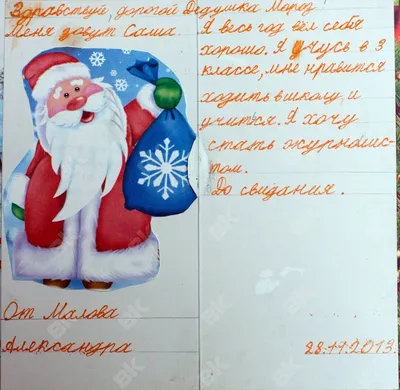 Здравствуй, дорогой Дедушка Мороз
Меня зовут Саша. Я весь год вёл себя
хорошо. Я учусь в 3
классе, мне нравится
ходить в школу, и
учится. Я хочу
стать журналис-
том.
До свидания.
От Малова
Александра
28.11.2013.